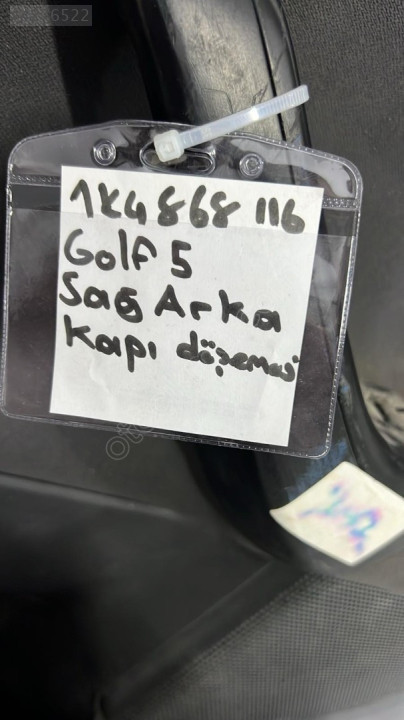 6522
1K4868 116
Golf 5
Sağ Arka
Kapı döşemesi